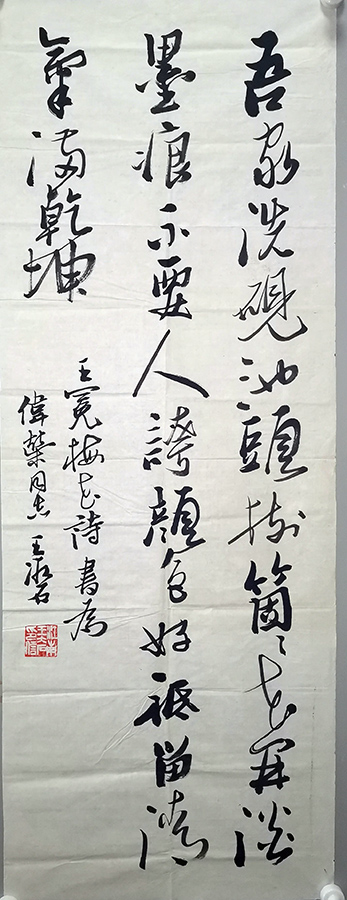 吾家洗硯池頭樹箇々花開淡
墨痕不要人誇顏色好祗留清
氣滿乾坤
王冕梅花詩書為
偉同志王石